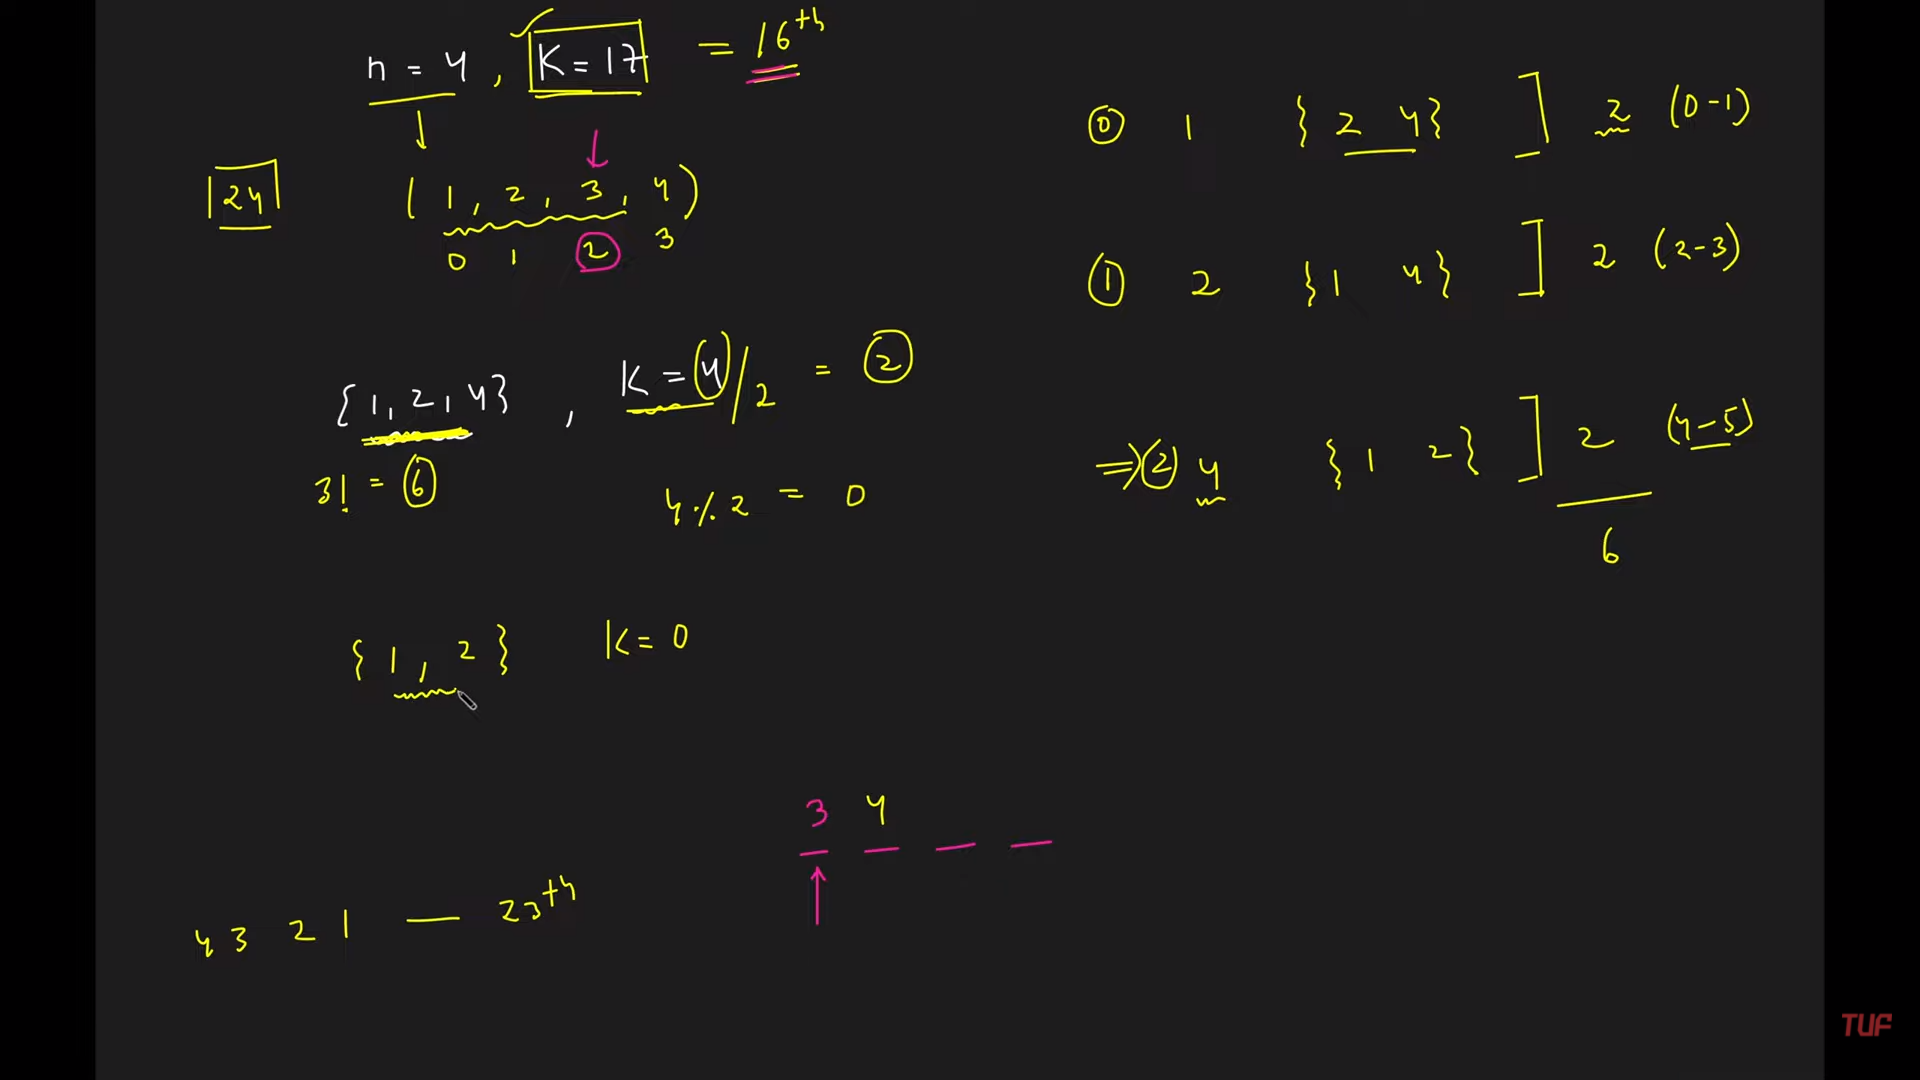 n = 4 , K = 17 = 16th
24
( 1 , 2 , 3 , 4 )
0 1 2 3
{ 1 , 2 , 4 } , K = 4 / 2 = 2
3! = 6
4 % 2 = 0
{ 1 , 2 } K = 0
3 4
4 3 2 1 — 23th
0 1 { 2 4 } ] 2 (0 - 1)
1 2 { 1 4 } ] 2 (2 - 3)
⇒ 2 4 { 1 2 } ] 2 (4 - 5)
6
TUF